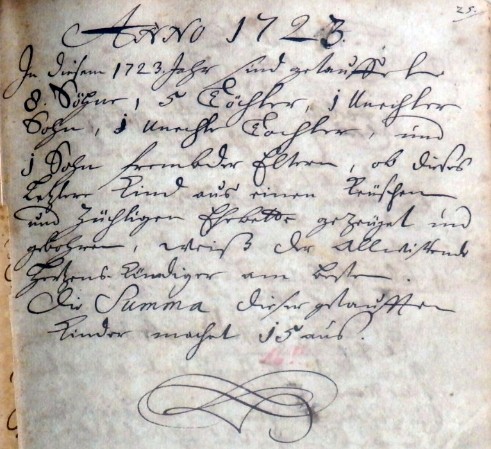 25.
ANNO 1723.
In diesem 1723. Jahr sind getauffet
8. Söhne, 5 Töchter, 1 Unechter
Sohn, 1 Unechte Tochter, und
1 Sohn frembder Eltern, ob dieses
letztere Kind aus einen Keüschen
und züchtigen Ehebette gezeüget und
gebohren, weiß der Allwissende
Hertzens-Kündiger am besten.
Die Summa dieser getaufften
Kinder machet 15 aus.
16!!